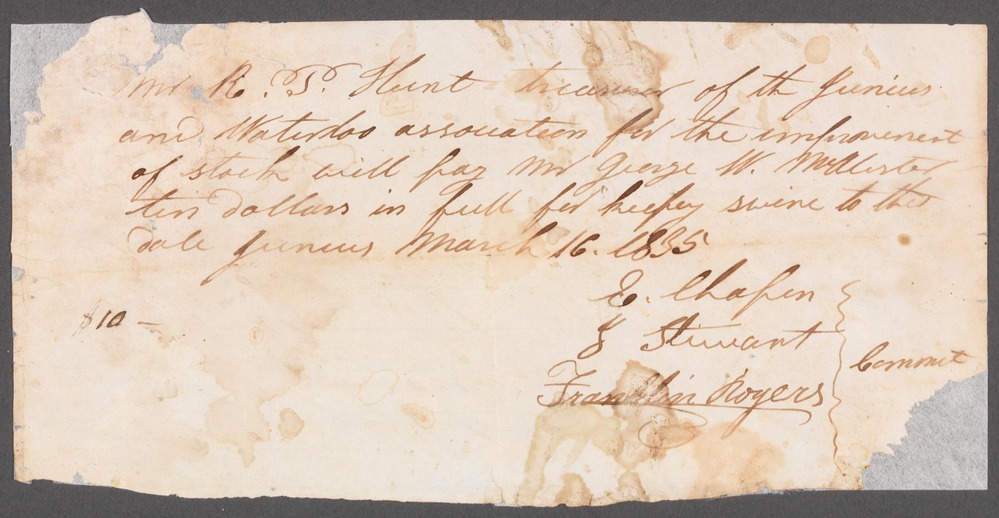 Mr R. P. Hunt treasurer of th Junius
and Waterloo association for the improvement
of stock will pay Mr George W. McAlister
ten dollars in full for keeping swine to this
date Junius March 16. 1835
E. Chapin
J Stewart
Franklin Rogers
Commit
$10 —